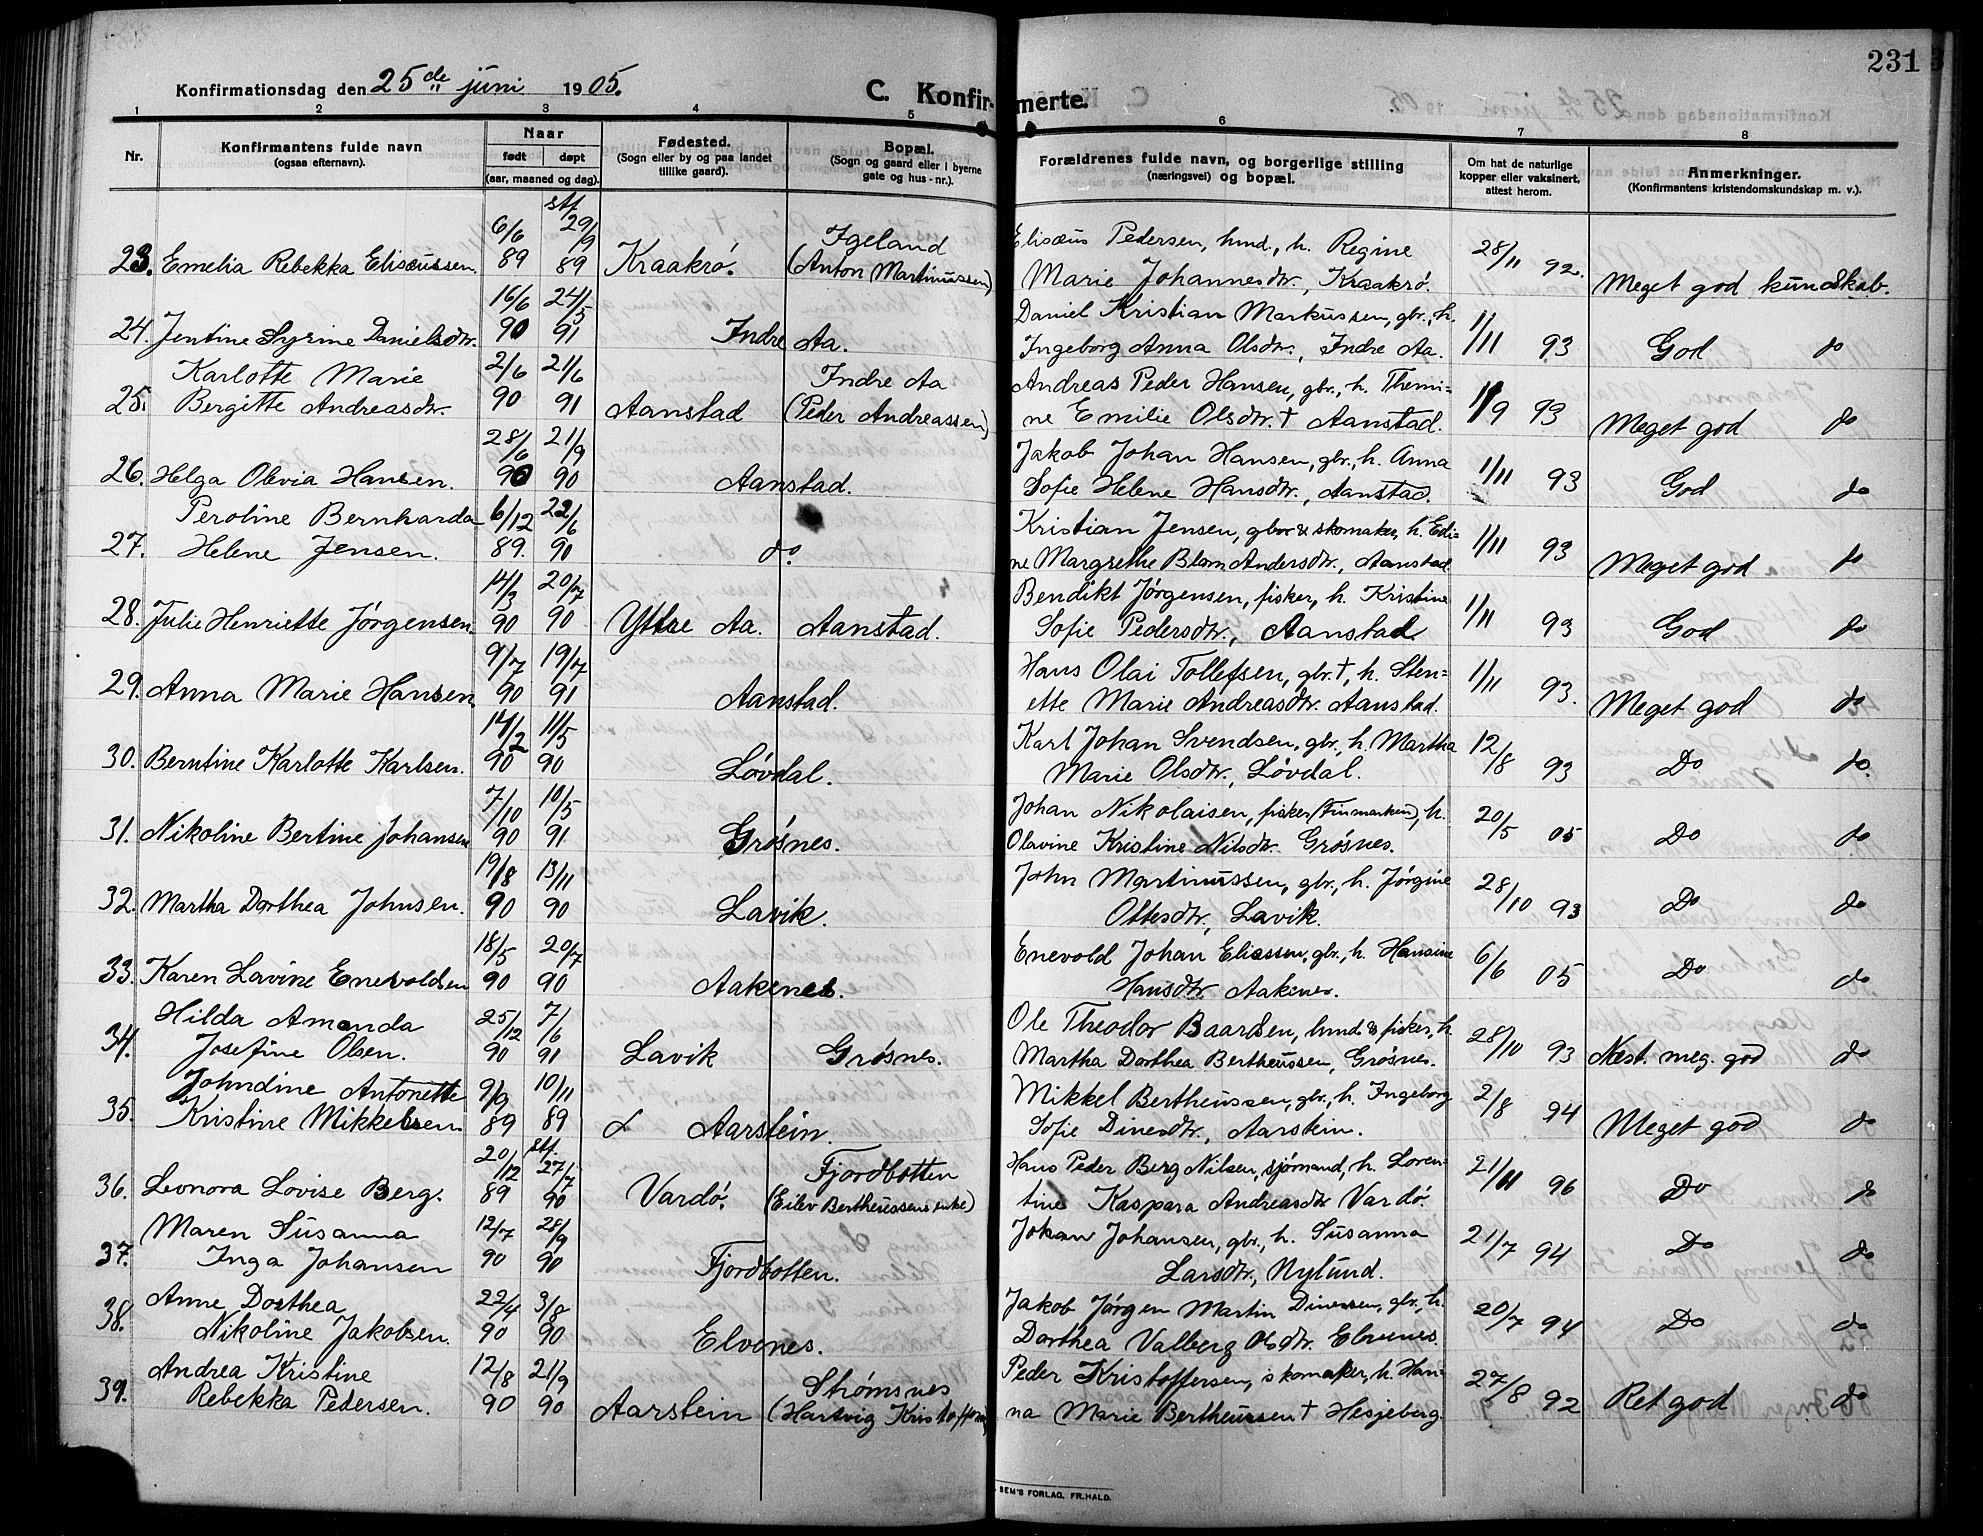 231
Konfirmationsdag den 25de juni 1905.
C. Konfirmerte.
1 2 3 4 5 6 7 8
Nr.
Konfirmantens fulde navn
(ogsaa efternavn).
Naar
født døpt
(aar, maaned og dag).
Fødested.
(Sogn eller by og paa landet
tillike gaard).
Bopæl.
(Sogn og gaard eller i byerne
gate og hus-nr.).
Forældrenes fulde navn, og borgerlige stilling
(næringsvei) og bopæl.
Om hat de naturlige
kopper eller vaksinert,
attest herom.
Anmerkninger.
(Konfirmantens kristendomskundskap m. v.).
stf.
6/6 29/9 Igeland Elisæus Pedersen, hmd., h. Regine 28/11
23. Emelia Rebekka Elisæussen. 89 89 Kraakrø. (Anton Martinussen) Marie Johannesdtr., Kraakrø. 92. Meget god kundskab.
16/6 24/5 Daniel Kristian Markussen, gbr., h. 1/11
24. Jentine Syrine Danielsdtr. 90 91 Indre Aa. Ingeborg Anna Olsdtr., Indre Aa. 93 God do
Karlotte Marie 2/6 21/6 Indre Aa Andreas Peder Hansen, gbr., h. Themi=
25. Bergitte Andreasdtr. 90 91 Aanstad (Peder Andreassen) ne Emilie Olsdtr. † Aanstad. 93 Meget god do
28/6 21/9 Jakob Johan Hansen, gbr., h. Anna 1/11
26. Helga Olevia Hansen. 90 90 Aanstad. Sofie Helene Hansdtr., Aanstad. 93 God do
Peroline Bernharda 6/12 22/6 Kristian Jensen, gbr & skomaker, h. Edi= 1/11
27. Helene Jensen. 89. 90 do. ne Margrethe Blom Andersdtr., Aanstad 93 Meget god do
14/3 20/7 Bendikt Jørgensen, fisker, h. Kristine 1/11
28. Julie Henriette Jørgensen. 90 90 Yttre Aa. Aanstad. Sofie Pedersdtr., Aanstad. 93 God do
9/7 19/7 Hans Olai Tollefsen, gbr. †, h. Sten= 1/11
29. Anna Marie Hansen 90 91 Aanstad. ette Marie Andreasdtr. Aanstad. 93. Meget god do
14/2 11/5 Karl Johan Svendsen, gbr., h. Martha 12/8
30. Berntine Karlotte Karlsen. 90 90 Løvdal. Marie Olsdtr., Løvdal. 93 Do do.
7/10 10/5 Johan Nikolaisen, fisker (Finmarken), h. 20/5
31. Nikoline Bertine Johansen 90 91 Grøsnes. Olavine Kristine Nilsdtr. Grøsnes. 05 Do do
19/8 13/11 John Martinussen, gbr., h. Jørgine 28/10
32. Martha Dorthea Johnsen. 90 90 Lavik. Ottesdtr., Lavik. 93 Do do
18/5 20/7 Enevold Johan Eliassen, gbr., h. Hansine 6/6
33. Karen Lavine Enevoldsen 90 90 Aakenes. Hansdtr. Aakenes. 05 Do do
Hilda Amanda 25/12 7/6 Ole Theodor Baardsen, hmd & fisker, h. 28/10
34. Josefine Olsen. 90 91 Lavik Grøsnes. Martha Dorthea Bertheussen, Grøsnes. 93 Næst. meg. god do
Johndine Antonette 9/9 10/11 Mikkel Bertheussen, gbr., h. Ingeborg 2/8
35. Kristine Mikkelsen 89 89 Aarstein. Sofie Dinesdtr., Aarstein. 94 Meget god do
stf.
20/12 27/7 Fjordbotten Hans Peder Berg Nilsen, sjømand, h. Loren= 21/11
36. Leonora Lovise Berg. 89 90 Vardø. (Eilev Bertheussens enke) tine Kaspara Andreasdtr Vardø. 96 Do do
Maren Susanna 12/7 28/9 Johan Johansen, gbr., h. Susanna 21/7
37. Inga Johansen 90 90 Fjordbotten. Larsdtr., Nylund. 94 Do do
Anne Dorthea 22/4 3/8 Jakob Jørgen Martin Dinessen, gbr., h. 20/7
38. Nikoline Jakobsen. 90 90 Elvenes. Dorthea Valberg Olsdtr. Elvenes. 94 Do do
Andrea Kristine 12/8 21/9 Strømsnes Peder Kristoffersen, skomaker, h. Han= 27/8
39. Rebekka Pedersen. 90 90 Aarstein (Hartvig Kristoffersen) na Marie Bertheussen † Hesjeberg. 92 Ret god do
SEM'S FORLAG, FR.HALD.